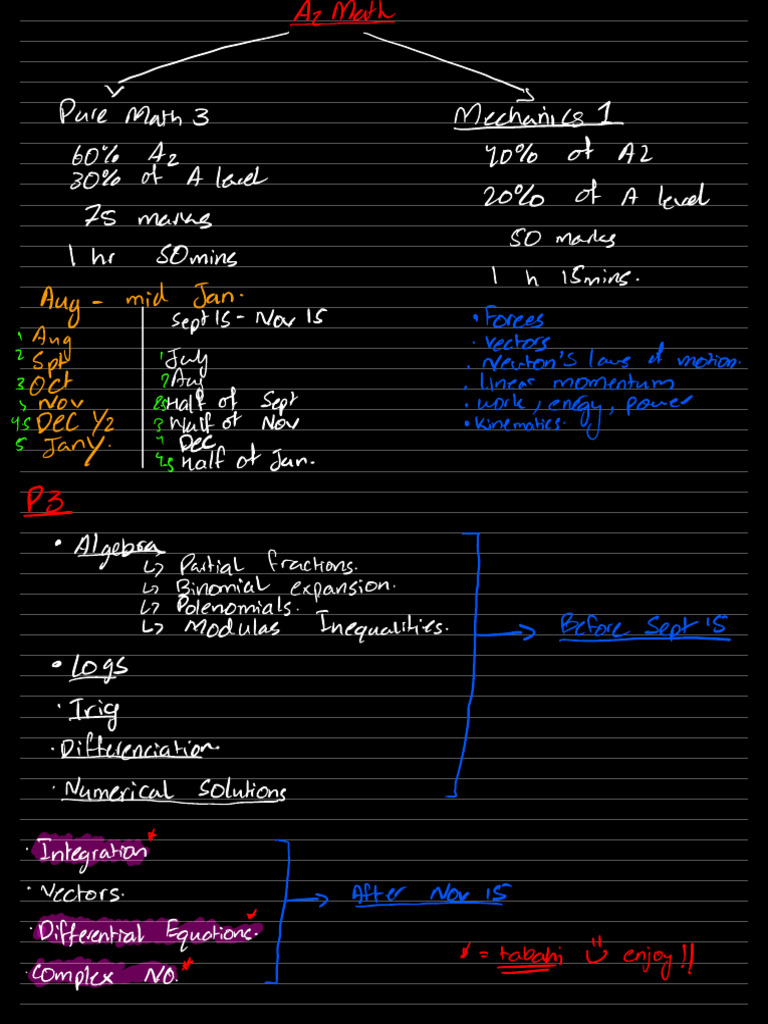 A2 Math
Pure Math 3
60% A2
30% of A level
75 marks
1 hr 50mins
Mechanics 1
40% of A2
20% of A level
50 marks
1 h 15mins.
Aug - mid Jan.
1 Aug
2 Spt
3 Oct
3 Nov
4.5 Dec 1/2
5 Jany.
Sept 15 - Nov 15
1 July
2 Aug
2.5 Half of Sept
3 Half of Nov
4 Dec
4.5 Half of Jan.
• Forces
• Vectors
• Newton's laws of motion.
• linear momentum
• work, energy, power
• Kinematics.
P3
• Algebra
↳ Partial fractions.
↳ Binomial expansion.
↳ Polenomials.
↳ Modulas Inequalities.
• Logs
• Trig
• Differenciation.
• Numerical Solutions
Before Sept 15
• Integration *
• Vectors.
• Differential Equations. *
• Complex NO. *
After Nov 15
* = tabahi enjoy!!